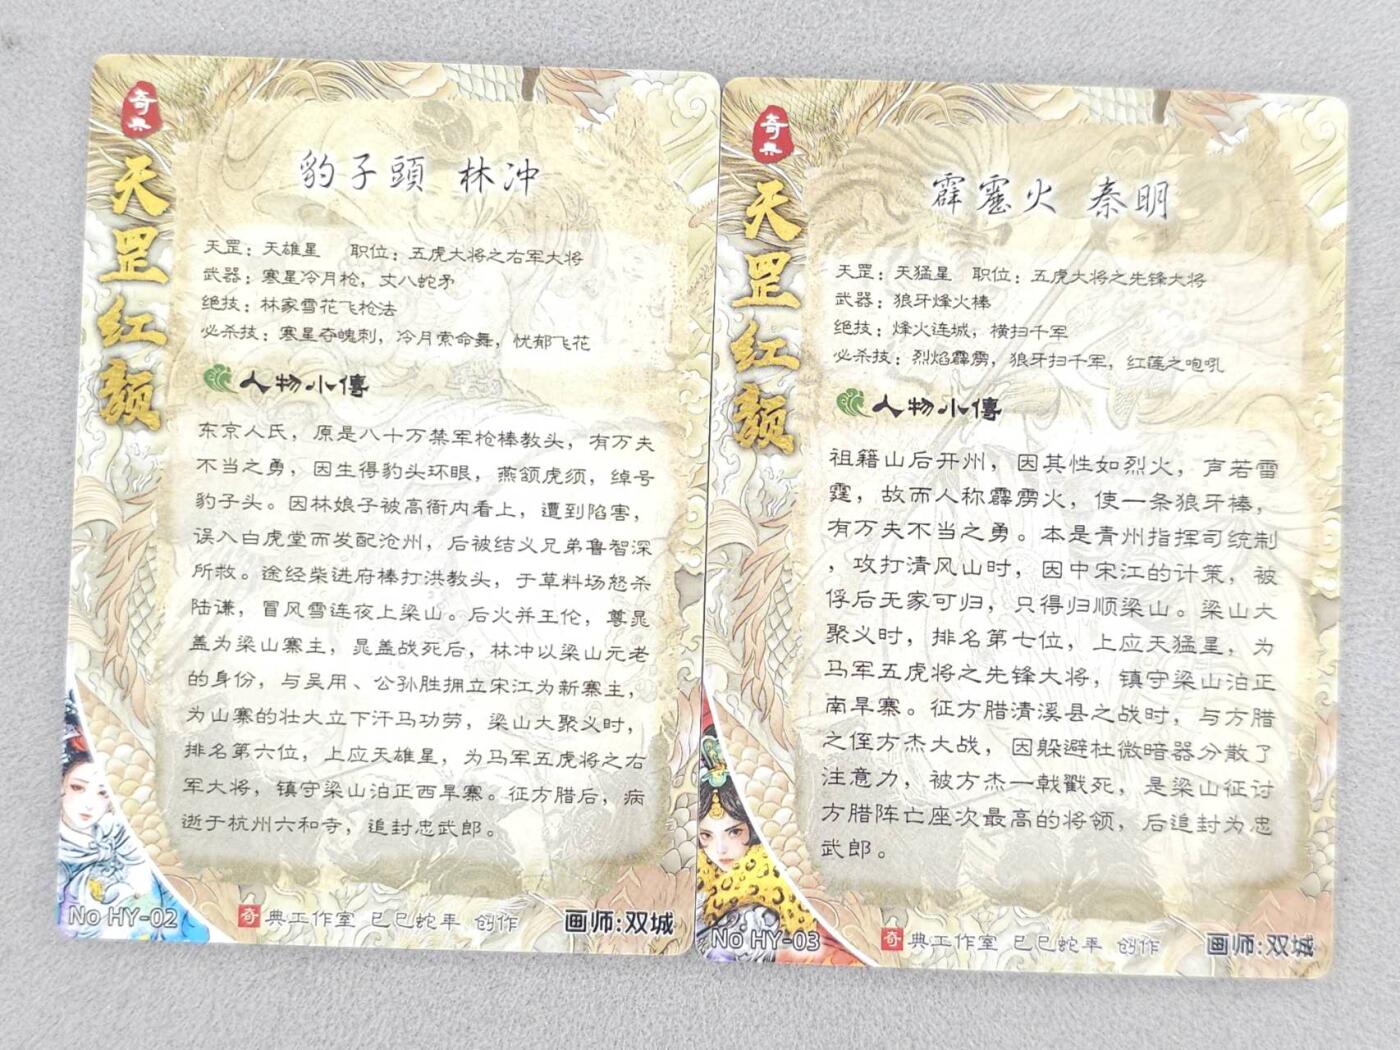 奇典
天罡红颜
豹子頭 林冲
天罡：天雄星 职位：五虎大将之右军大将
武器：寒星冷月枪，丈八蛇矛
绝技：林家雪花飞枪法
必杀技：寒星夺魄刺，冷月索命舞，忧郁飞花
人物小傳
东京人氏，原是八十万禁军枪棒教头，有万夫
不当之勇，因生得豹头环眼，燕颔虎须，绰号
豹子头。因林娘子被高衙内看上，遭到陷害，
误入白虎堂而发配沧州，后被结义兄弟鲁智深
所救。途经柴进府棒打洪教头，于草料场怒杀
陆谦，冒风雪连夜上梁山。后火并王伦，尊晁
盖为梁山寨主，晁盖战死后，林冲以梁山元老
的身份，与吴用、公孙胜拥立宋江为新寨主，
为山寨的壮大立下汗马功劳，梁山大聚义时，
排名第六位，上应天雄星，为马军五虎将之右
军大将，镇守梁山泊正西旱寨。征方腊后，病
逝于杭州六和寺，追封忠武郎。
No HY-02
奇典工作室 乙巳蛇年 创作
画师:双城
奇典
天罡红颜
霹靂火 秦明
天罡：天猛星 职位：五虎大将之先锋大将
武器：狼牙烽火棒
绝技：烽火连城，横扫千军
必杀技：烈焰霹雳，狼牙扫千军，红莲之咆吼
人物小傳
祖籍山后开州，因其性如烈火，声若雷
霆，故而人称霹雳火，使一条狼牙棒，
有万夫不当之勇。本是青州指挥司统制
，攻打清风山时，因中宋江的计策，被
俘后无家可归，只得归顺梁山。梁山大
聚义时，排名第七位，上应天猛星，为
马军五虎将之先锋大将，镇守梁山泊正
南旱寨。征方腊清溪县之战时，与方腊
之侄方杰大战，因躲避杜微暗器分散了
注意力，被方杰一戟戳死，是梁山征讨
方腊阵亡座次最高的将领，后追封为忠
武郎。
No HY-03
奇典工作室 乙巳蛇年 创作
画师:双城